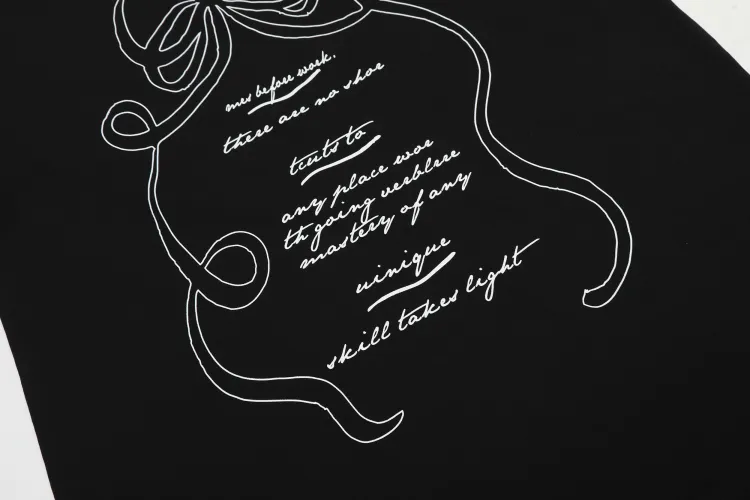 mes before work.
there are no shor
tcuts to
any place wor
th going verblrre
mastery of any
uinique
skill takes light